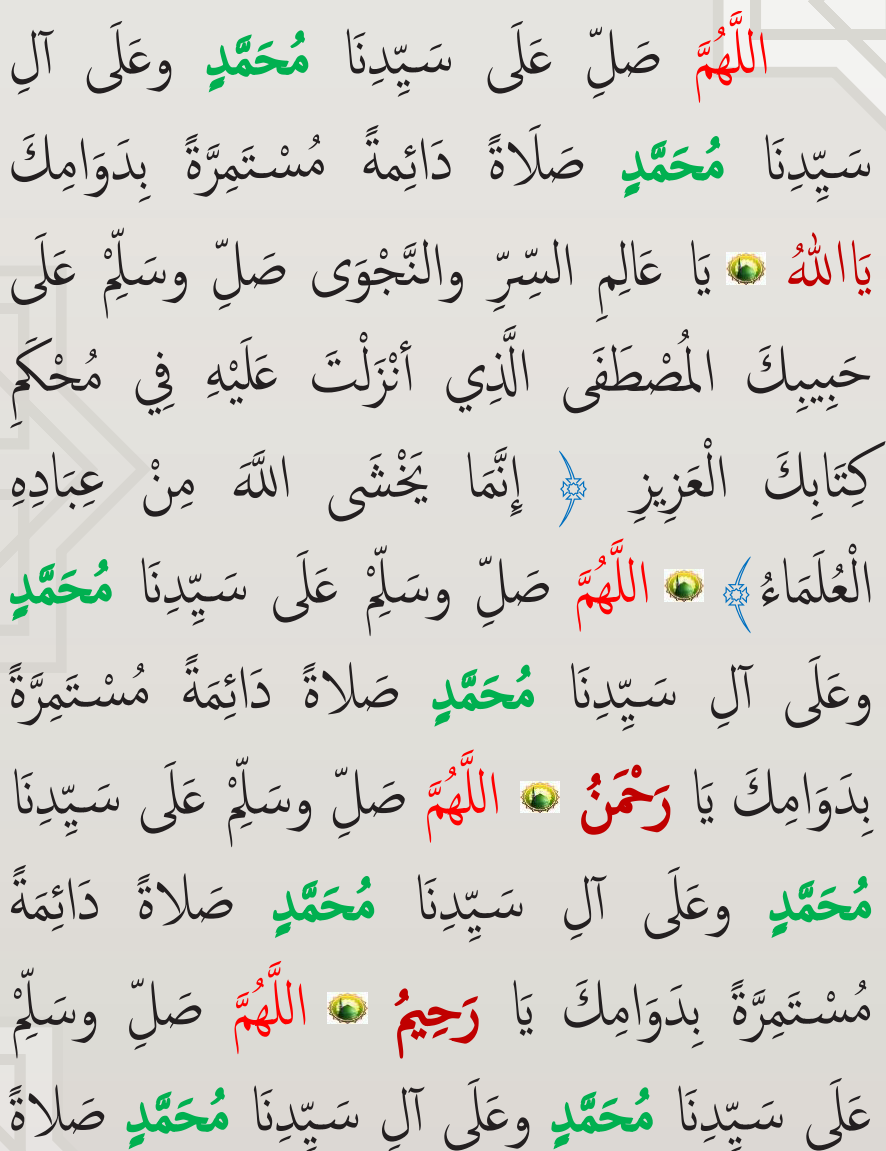 اللَّهُمَّ صَلِّ عَلَى سَيِّدِنَا مُحَمَّدٍ وعَلَى آلِ
سَيِّدِنَا مُحَمَّدٍ صَلَاةً دَائِمةً مُسْتَمِرَّةً بِدَوَامِكَ
يَااللهُ يَا عَالِمِ السِّرِّ والنَّجْوَى صَلِّ وسَلِّمْ عَلَى
حَبِيبِكَ المُصْطَفَى الَّذِي أنْزَلْتَ عَلَيْهِ فِي مُحْكَمِ
كِتَابِكَ الْعَزِيزِ ﴿ إِنَّمَا يَخْشَى اللَّهَ مِنْ عِبَادِهِ
الْعُلَمَاءُ﴾ اللَّهُمَّ صَلِّ وسَلِّمْ عَلَى سَيِّدِنَا مُحَمَّدٍ
وعَلَى آلِ سَيِّدِنَا مُحَمَّدٍ صَلاةً دَائِمَةً مُسْتَمِرَّةً
بِدَوَامِكَ يَا رَحْمَنُ اللَّهُمَّ صَلِّ وسَلِّمْ عَلَى سَيِّدِنَا
مُحَمَّدٍ وعَلَى آلِ سَيِّدِنَا مُحَمَّدٍ صَلاةً دَائِمَةً
مُسْتَمِرَّةً بِدَوَامِكَ يَا رَحِيمُ اللَّهُمَّ صَلِّ وسَلِّمْ
عَلَى سَيِّدِنَا مُحَمَّدٍ وعَلَى آلِ سَيِّدِنَا مُحَمَّدٍ صَلاةً